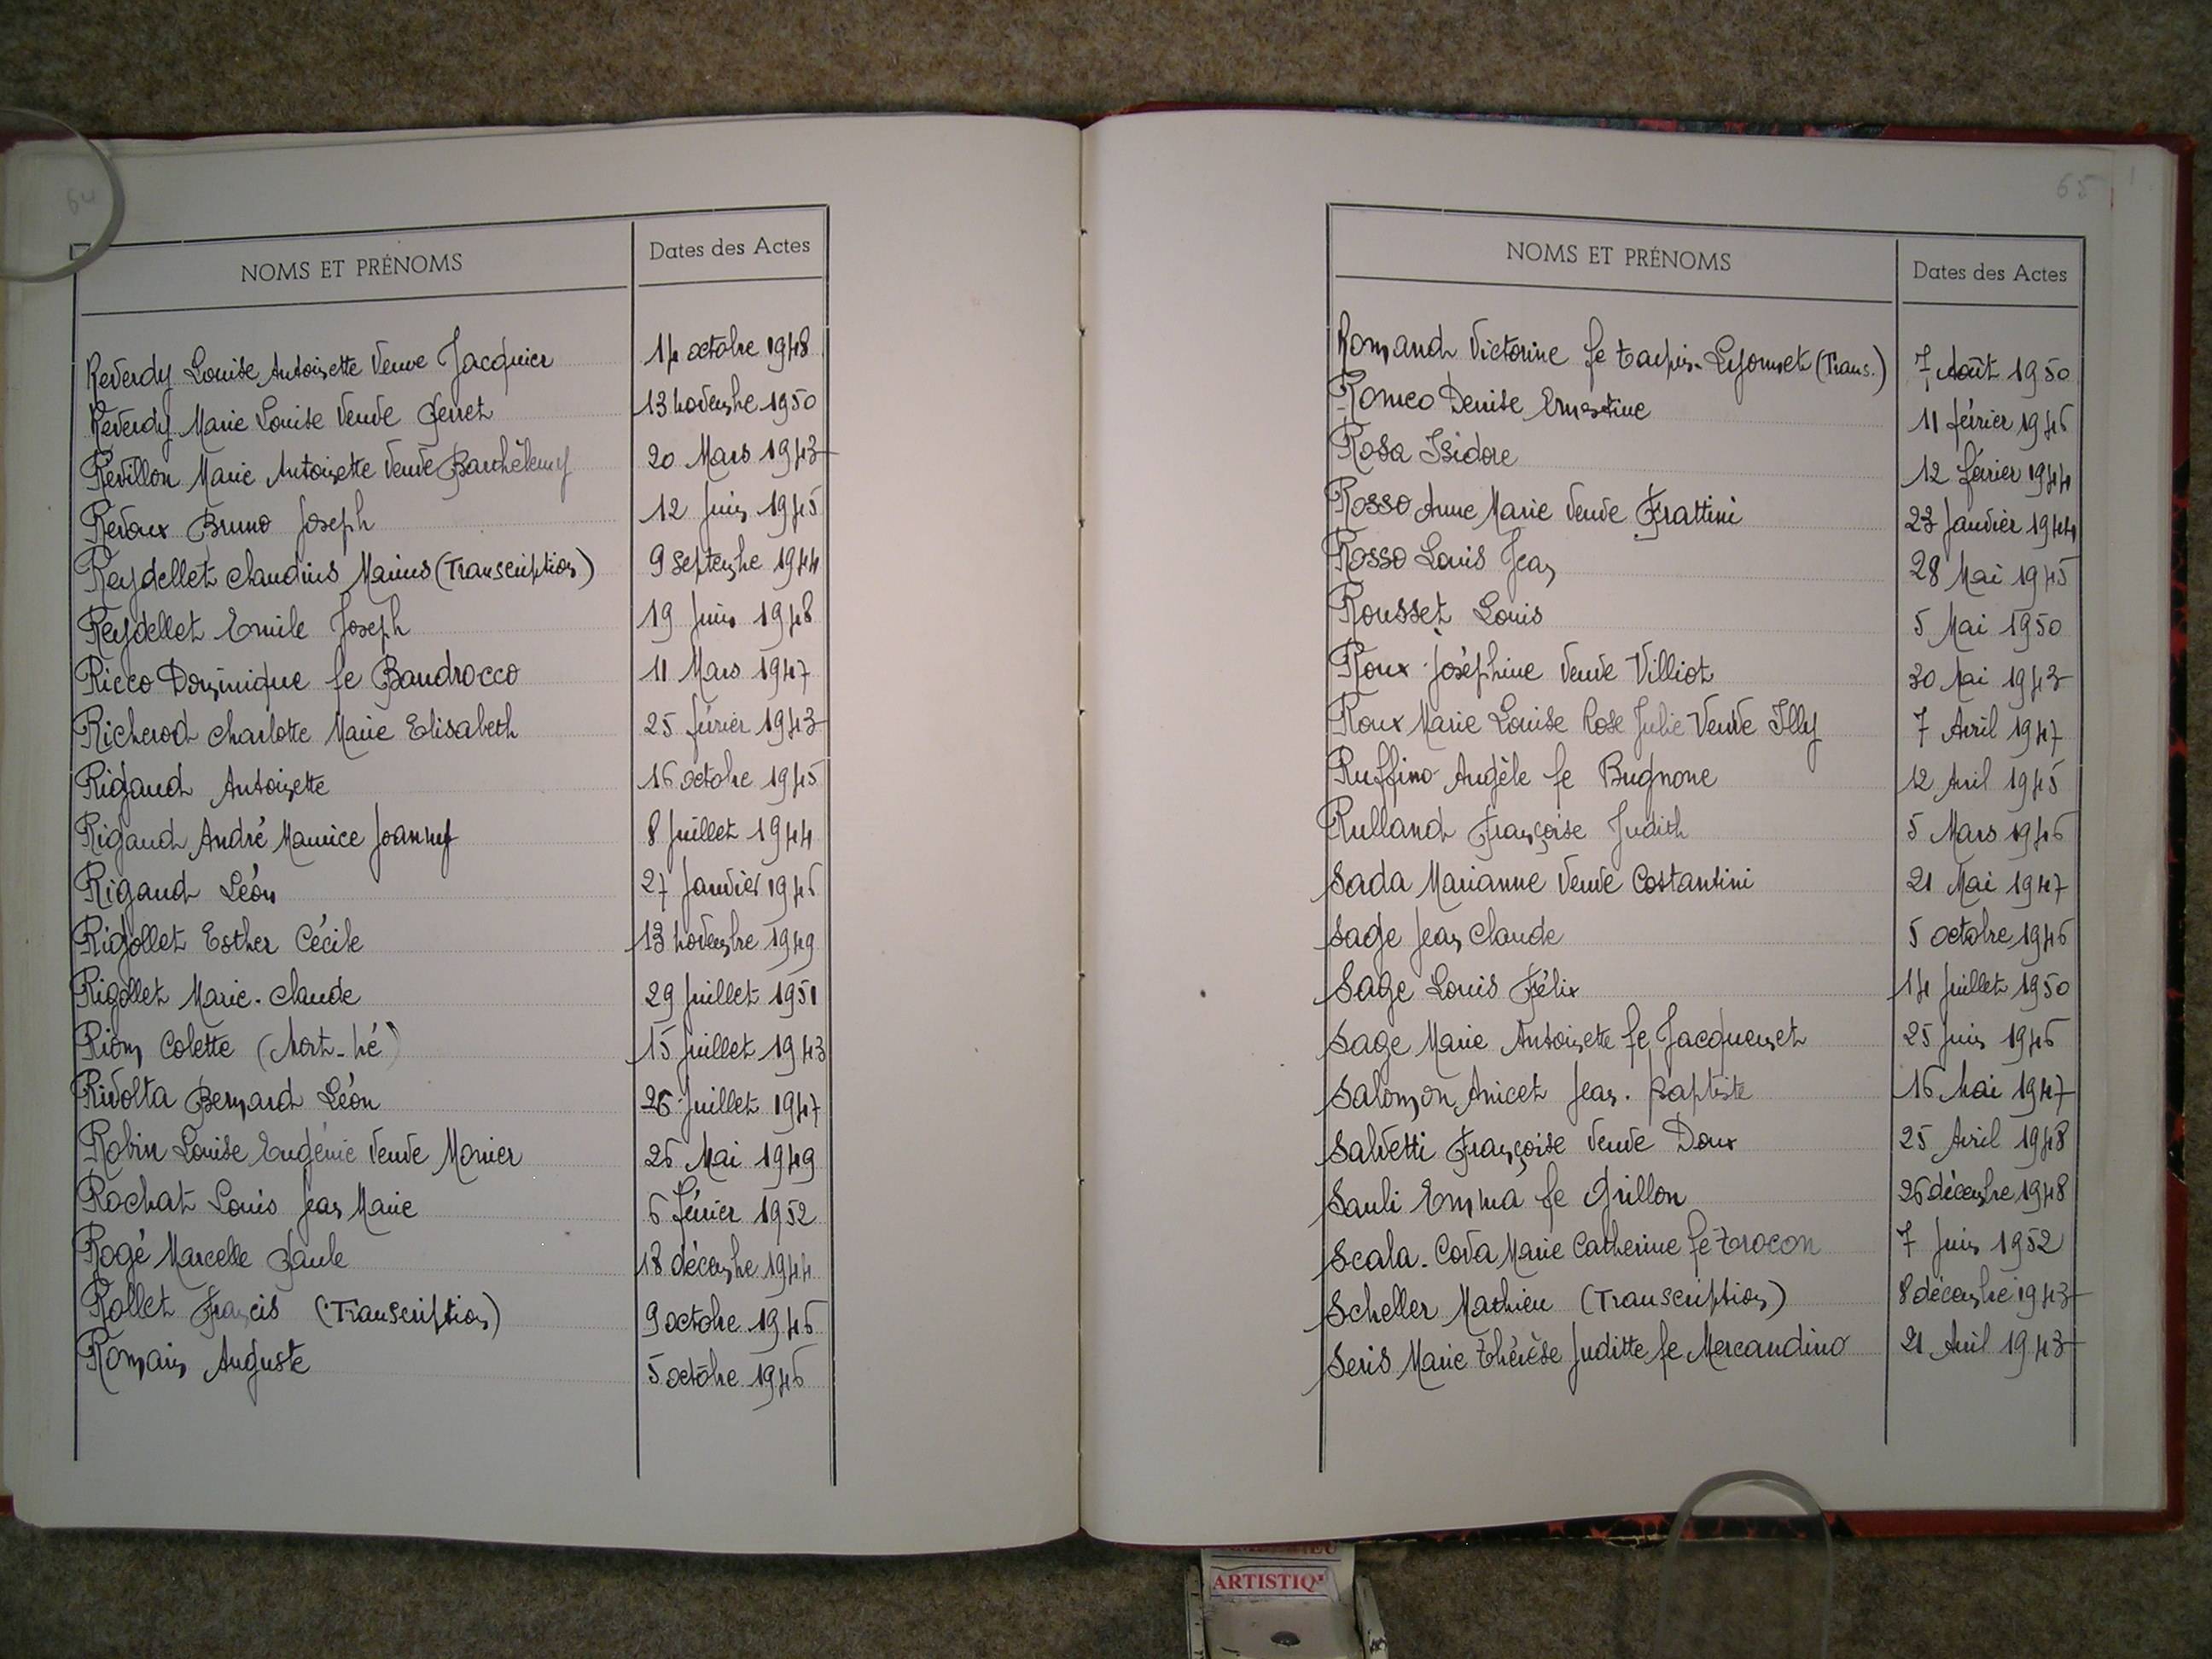 64
NOMS ET PRÉNOMS Dates des Actes
Reverdy Louise Antoinette Veuve Jacquier 14 octobre 1948
Reverdy Marie Louise Veuve Perret 13 novembre 1950
Revillon Marie Antoinette Veuve Barthélemy 20 Mars 1943
Revoux Bruno Joseph 12 Juin 1945
Reydellet Claudius Marius (Transcription) 9 septembre 1944
Reydellet Emile Joseph 19 Juin 1948
Ricco Dominique fe Baudrocco 11 Mars 1947
Richerod Charlotte Marie Elisabeth 25 février 1943
Rigaud Antoinette 16 octobre 1945
Rigaud André Maurice Joanny 8 Juillet 1944
Rigaud Léon 27 Janvier 1946
Rigollet Esther Cécile 13 novembre 1949
Rigollet Marie-Claude 29 Juillet 1951
Riom Colette (Mort-né) 15 Juillet 1943
Rivolta Bernard Léon 26 Juillet 1947
Robin Louise Eugénie Veuve Monier 26 Mai 1949
Rochat Louis Jean Marie 6 Février 1952
Rogé Marcelle Paule 18 décembre 1944
Rollet Francis (Transcription) 9 octobre 1946
Romain Auguste 5 octobre 1946
65
NOMS ET PRÉNOMS Dates des Actes
Romand Victorine fe Tarpin-Lyonnet (Trans.) 7 Août 1950
Romeo Denise Ernestine 11 février 1946
Rosa Isidore 12 février 1944
Rosso Anne Marie Veuve Frattini 23 Janvier 1944
Rosso Louis Jean 28 Mai 1945
Rousset Louis 5 Mai 1950
Roux Joséphine Veuve Villiot 30 Mai 1943
Roux Marie Louise Rose Julie Veuve Illy 7 Avril 1947
Ruffino Angèle fe Bugnone 12 Avril 1945
Rulland Françoise Judith 5 Mars 1946
Sada Marianne Veuve Costantini 21 Mai 1947
Sage Jean Claude 5 octobre 1946
Sage Louis Félix 14 Juillet 1950
Sage Marie Antoinette fe Jacquemet 25 Juin 1946
Salomon Anicet Jean-Baptiste 16 Mai 1947
Salvetti Françoise Veuve Doux 25 Avril 1948
Sauli Emma fe Grillon 26 décembre 1948
Scala-Cova Marie Catherine fe Trocon 7 Juin 1952
Scheller Mathieu (Transcription) 8 décembre 1943
Seris Marie Thérèse Juditte fe Mercandino 21 Avril 1943
ARTISTIQ